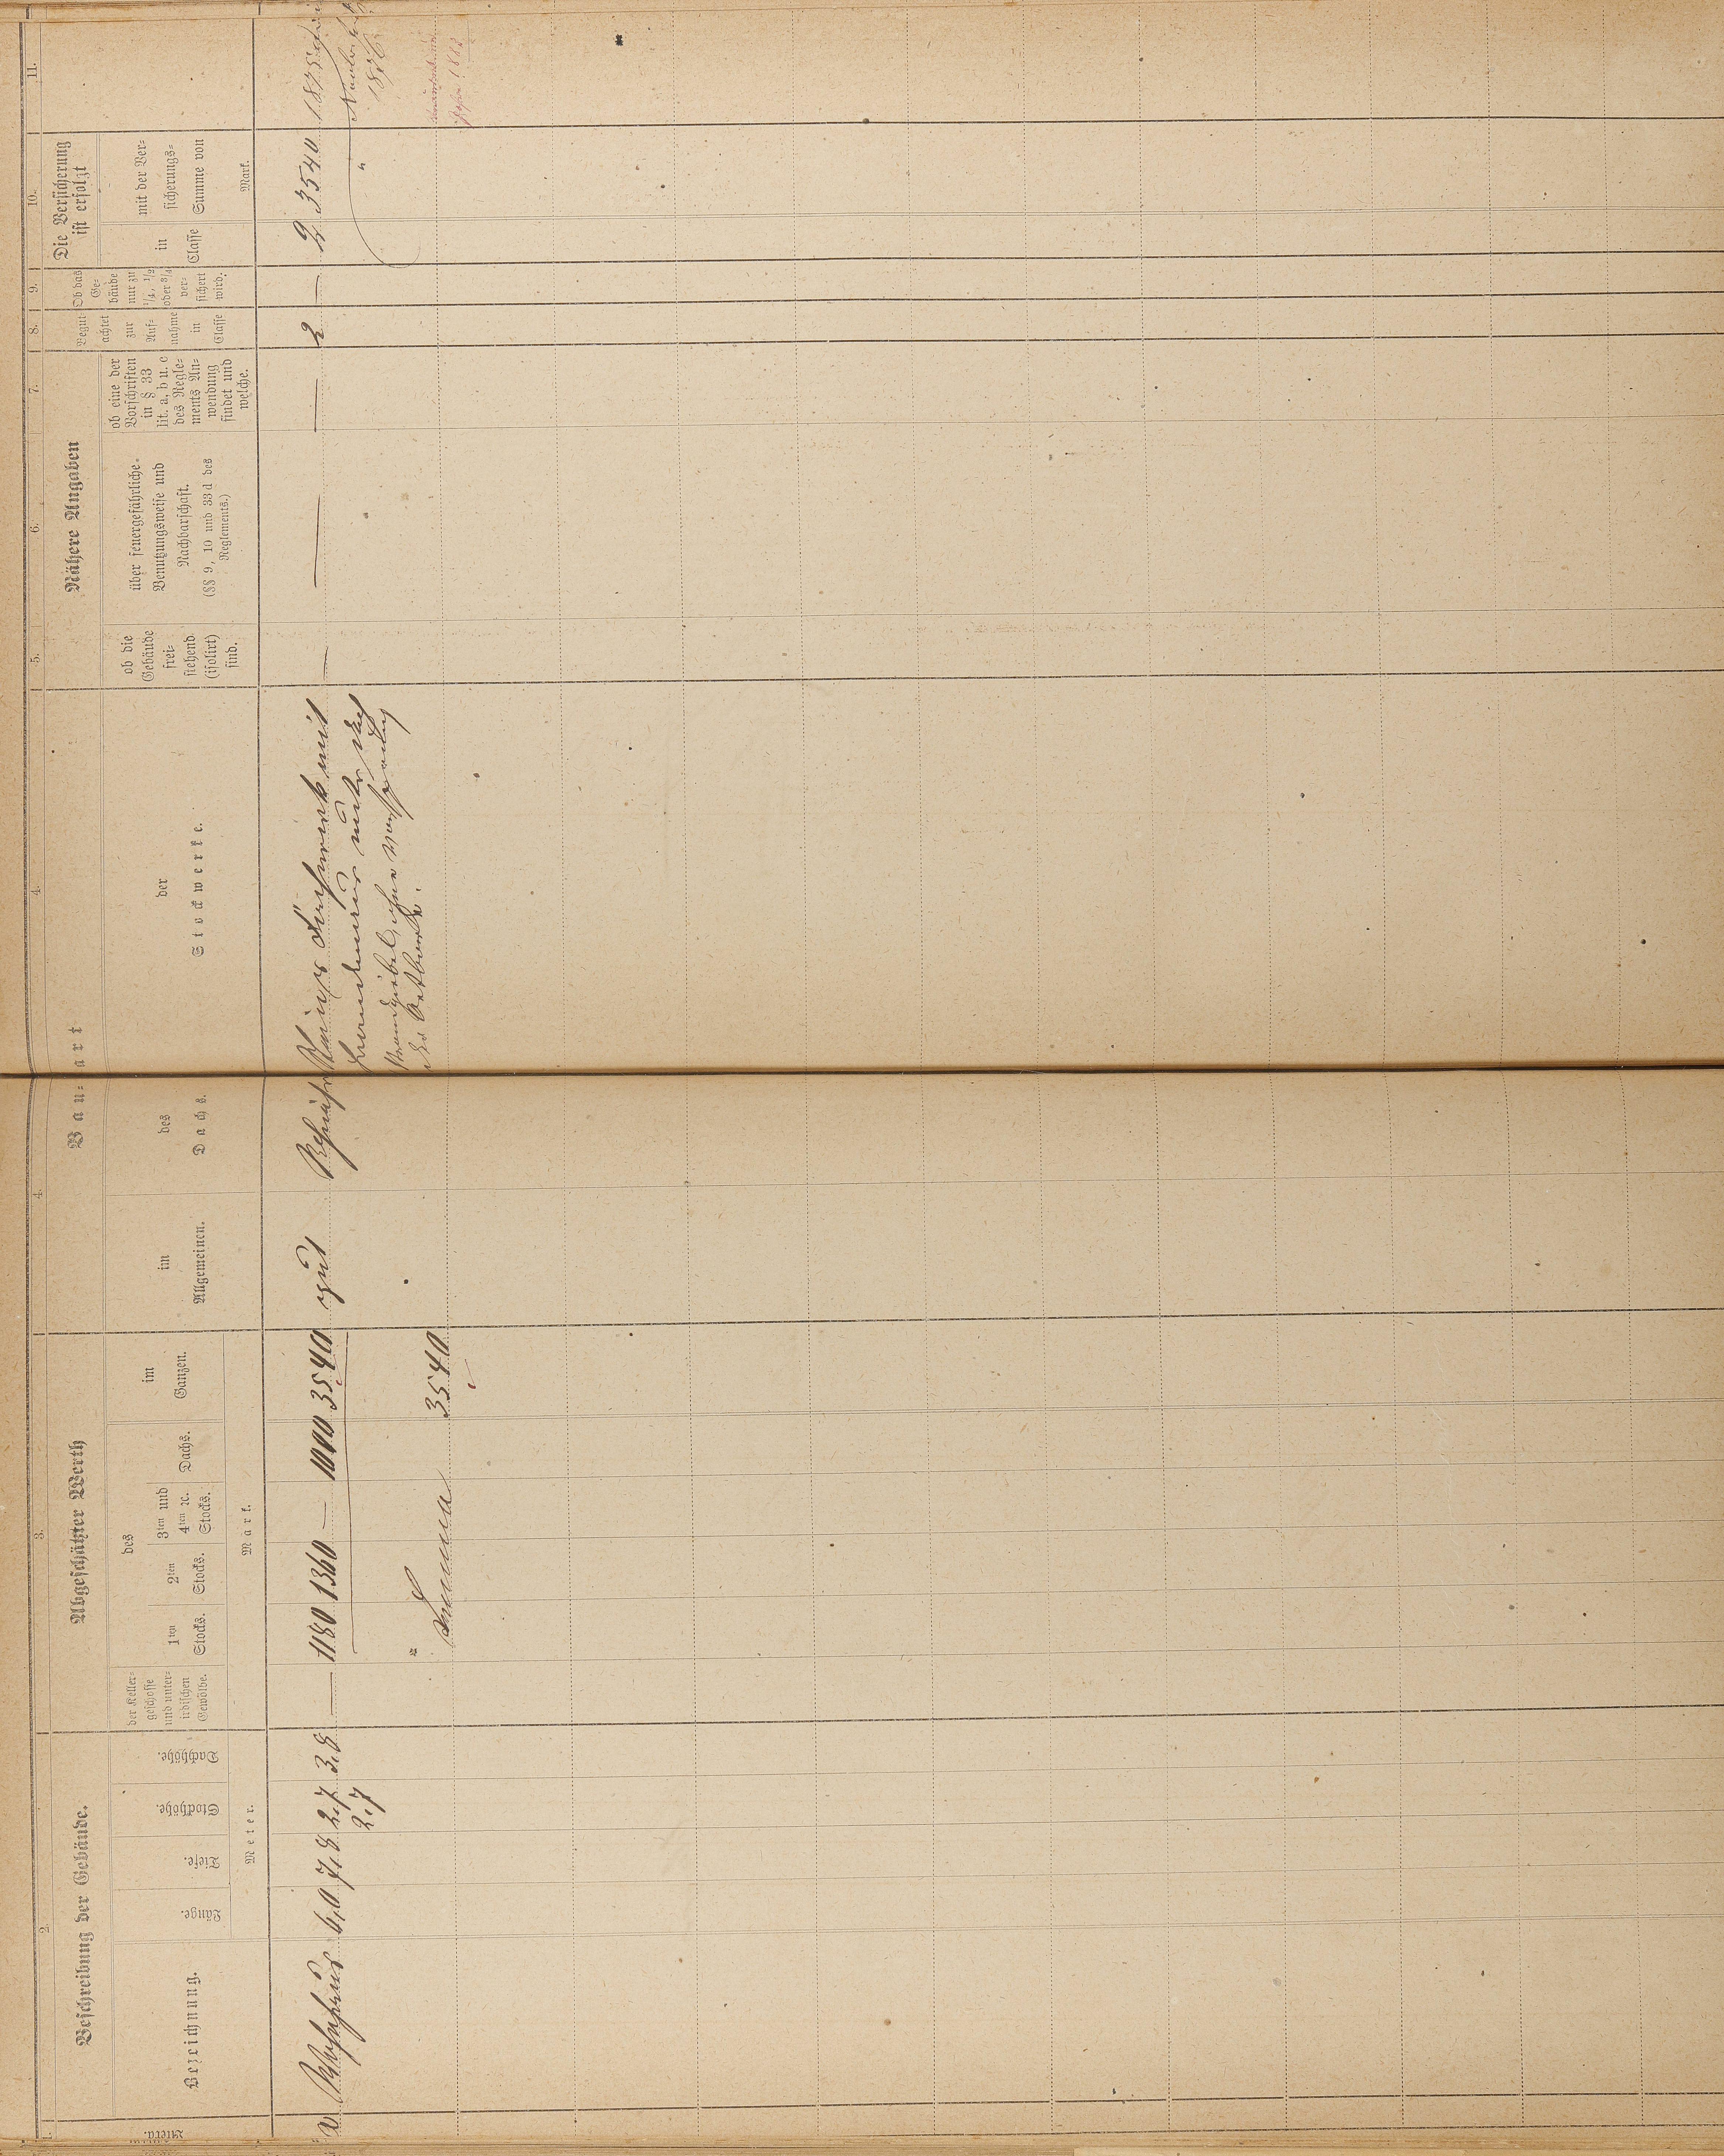 1.
Litera.
2.
Beschreibung der Gebäude.
Bezeichnung.
Länge.
Tiefe.
Stockhöhe.
Dachhöhe.
Meter.
3.
Abgeschätzter Werth
der Keller-
geschosse
und unter-
irdischen
Gewölbe.
des
1ten
Stocks.
2ten
Stocks.
3ten und
4ten ꝛc.
Stocks.
Dachs.
im
Ganzen.
Mark.
4.
4.
Bau-art
im
Allgemeinen.
des
Dachs.
der
Stockwerke.
5.
6.
7.
Nähere Angaben
ob die
Gebäude
frei-
stehend
(isolirt)
sind.
über feuergefährliche
Benutzungsweise und
Nachbarschaft.
(§§ 9, 10 und 33 d des
Reglements.)
ob eine der
Vorschriften
in § 33
lit. a, b u. c
des Regle-
ments An-
wendung
findet und
welche.
8.
Begut-
achtet
zur
Auf-
nahme
in
Classe
9.
Ob das
Ge-
bäude
nur zu
1/4, 1/2
oder 3/4
ver-
sichert
wird.
10.
Die Versicherung
ist erfolgt
in
Classe
mit der Ver-
sicherungs-
Summe von
Mark.
11.
a Wohnhaus 6,0 7,8 2,7 3,8 — 1180 1360 — 1000 3540 gut — — — 2 — 2 3540 1875
2,7
mit
1876
Summa 3540
1882